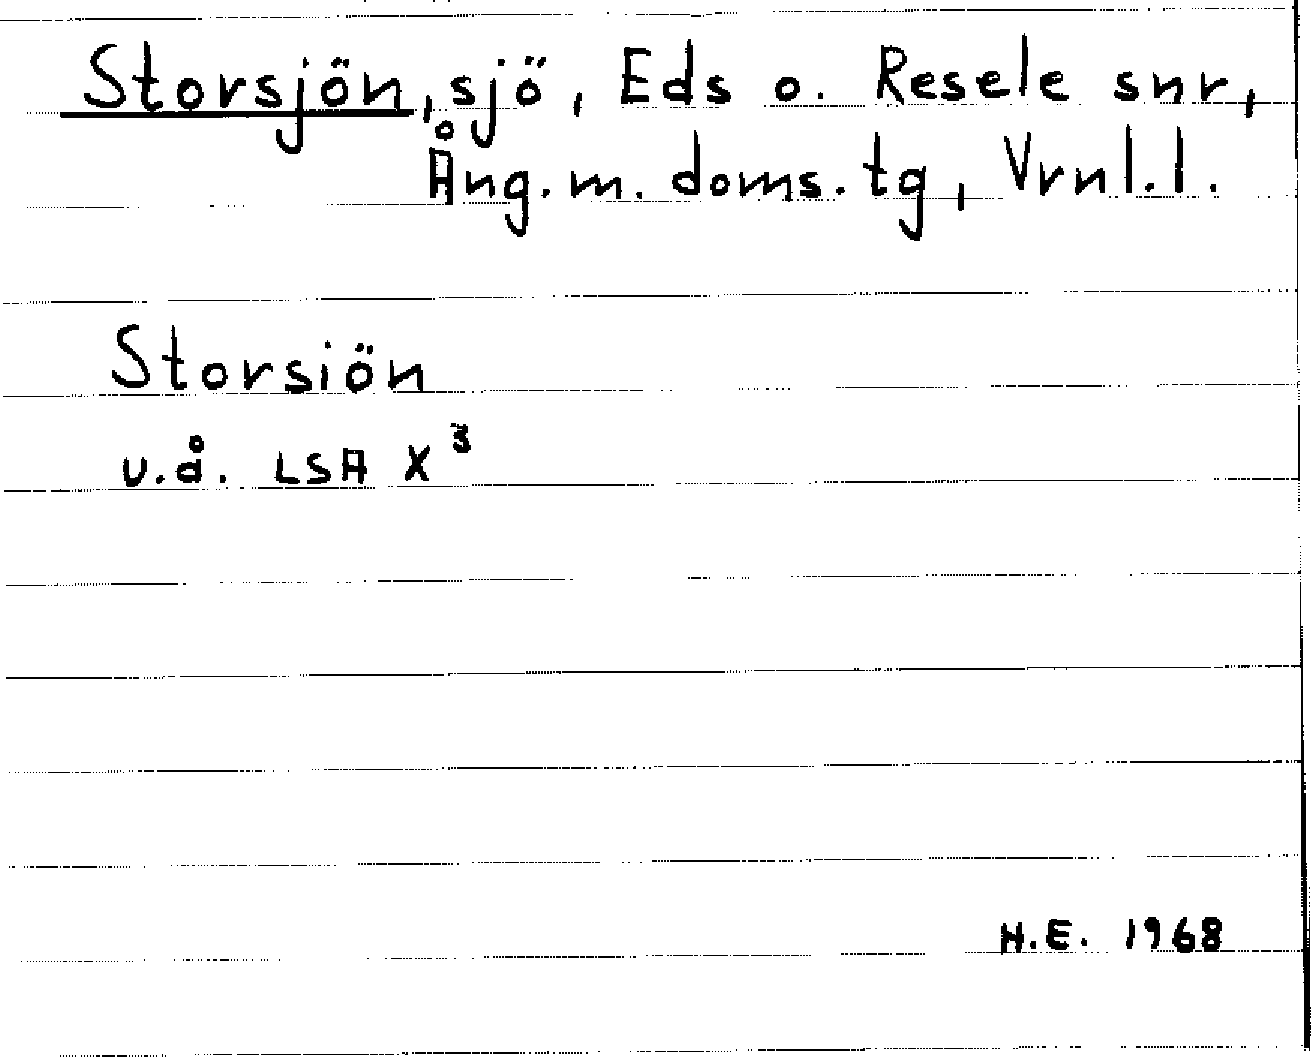 Storsjön, sjö, Eds o. Resele snr,
Ång. m. doms. tg, Vrnl. l.
Storsiön
u.å. LSA X³
H.E. 1968